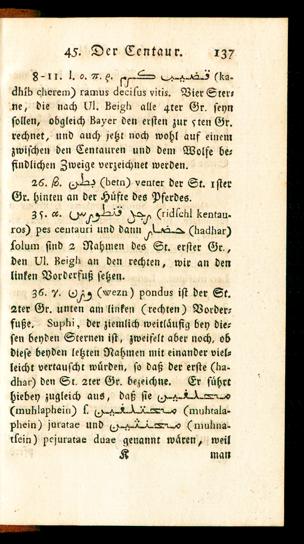 45. Der Centaur. 137
8-11. l. o. π. ϱ. قضيب كرم (ka-
dhíb cherem) ramus decisus vitis. Vier Ster-
ne, die nach Ul. Beigh alle 4ter Gr. seyn
sollen, obgleich Bayer den ersten zur 5ten Gr.
rechnet, und auch jetzt noch wohl auf einem
zwischen den Centauren und dem Wolfe be-
findlichen Zweige verzeichnet werden.
26. β. بطن (betn) venter der St. 1ster
Gr. hinten an der Hüfte des Pferdes.
35. α. رجل قنطورس (ridschl kentau-
ros) pes centauri und dann حضار (hadhar)
solum sind 2 Nahmen des St. erster Gr.,
den Ul. Beigh an den rechten, wir an den
linken Vorderfuß setzen.
36. γ. وزن (wezn) pondus ist der St.
2ter Gr. unten am linken (rechten) Vorder-
fuße. Suphi, der ziemlich weitläufig bey die-
sen beyden Sternen ist, zweifelt aber noch, ob
diese beyden letzten Nahmen mit einander viel-
leicht vertauscht würden, so daß der erste (ha-
dhar) den St. 2ter Gr. bezeichne. Er führt
hiebey zugleich aus, daß sie محلفين
(muhlaphein) s. محتلفين (muhtala-
phein) juratae und محنثين (muhna-
tsein) pejuratae duae genannt wären, weil
K man